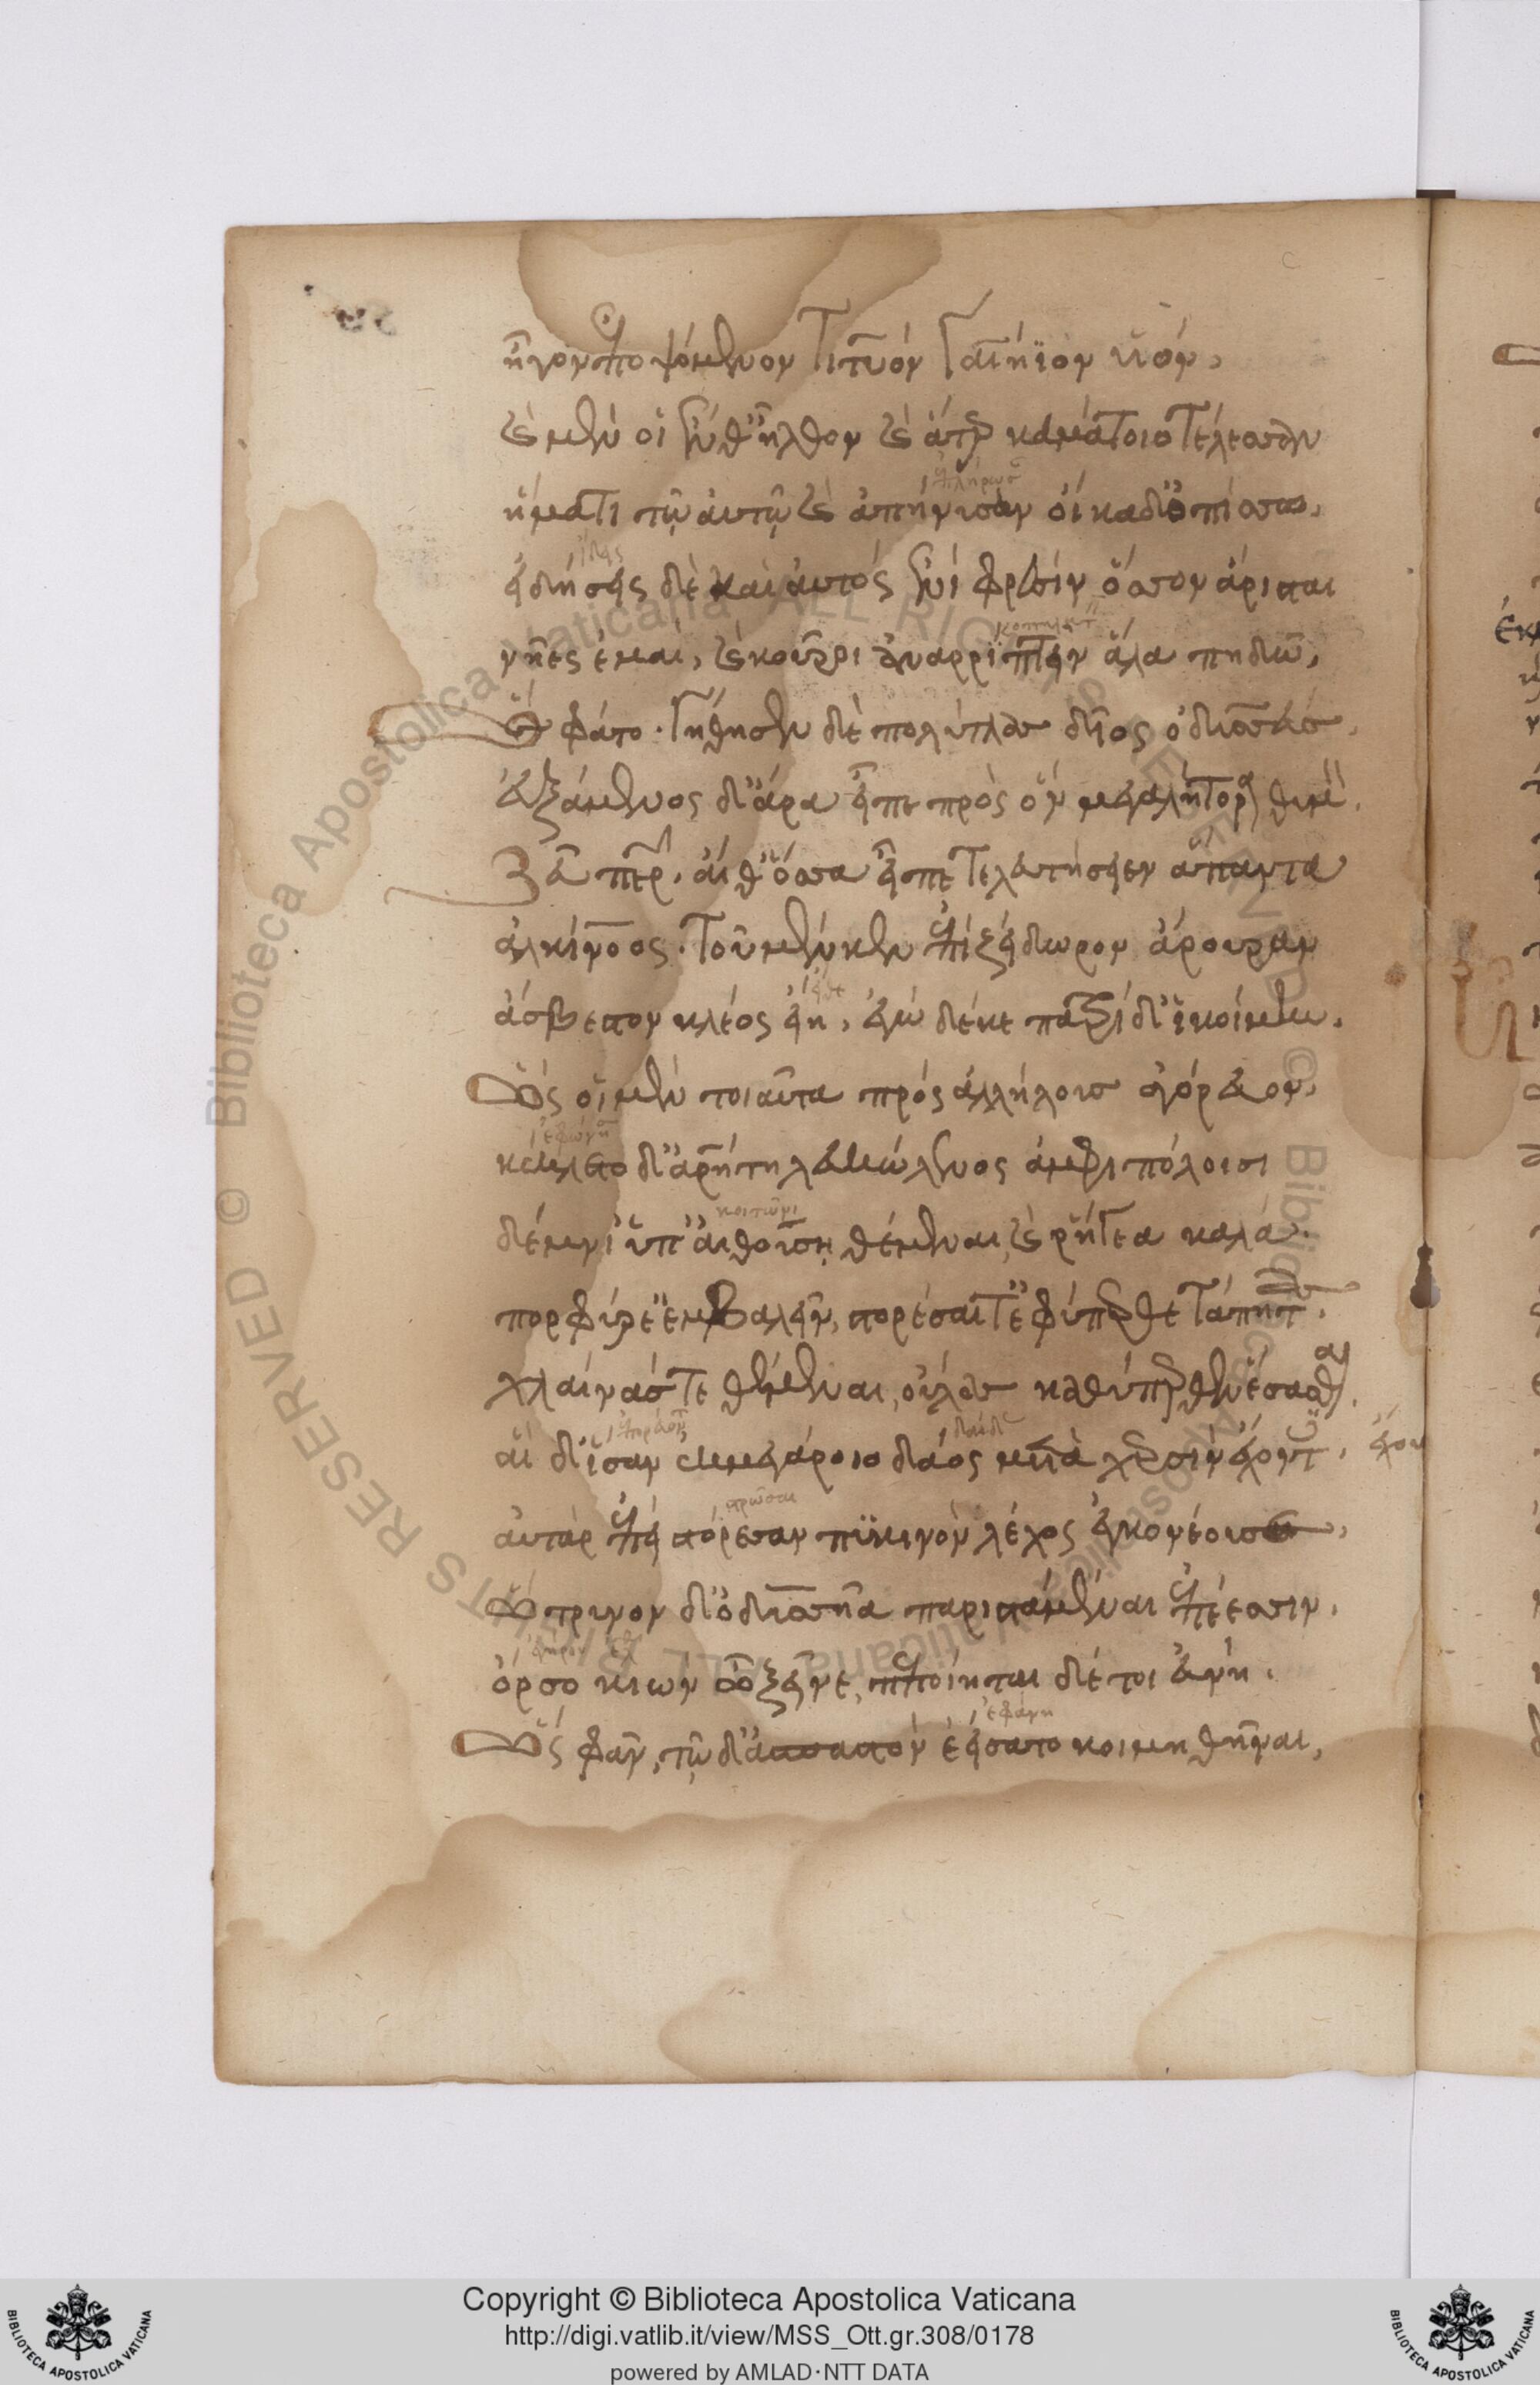 ἦγον ἐποψόμενον Τιτυὸν Γαιήϊον υἱόν,
καὶ μὲν οἱ ἔνθ' ἦλθον καὶ ἄτερ καμάτοιο τέλεσσαν
ἤματι τῷ αὐτῷ καὶ ἀπήνυσαν οἴκαδ' ὀπίσσω.
εἰδήσεις δὲ καὶ αὐτὸς ἐνὶ φρεσὶν ὅσσον ἄρισται
νῆες ἐμαί, καὶ κοῦροι ἀναρρίπτειν ἅλα πηδῷ,
Ὣς φάτο. γήθησεν δὲ πολύτλας δῖος ὀδυσσεύς.
εὐξάμενος δ' ἄρα εἶπε πρὸς ὃν μεγαλήτορα θυμόν.
Ζεῦ πάτερ. αἴθ' ὅσσα εἶπε τελευτήσειεν ἅπαντα
ἀλκίνοος. τοῦ μέν κεν ἐπὶ ζείδωρον ἄρουραν
ἄσβεστον κλέος εἴη, ἐγὼ δέ κε πατρίδ' ἱκοίμην.
Ὣς οἱ μὲν τοιαῦτα πρὸς ἀλλήλους ἀγόρευον,
κέκλετο δ' ἀρήτη λευκώλενος ἀμφιπόλοισι
δέμνι' ὑπ' αἰθούσῃ θέμεναι, καὶ ῥήγεα καλά
πορφύρε' ἐμβαλεῖν, στορέσαι τ' ἐφύπερθε τάπητας.
χλαίνας τε θέμεναι, οὔλας καθύπερθεν ἕσασθαι.
αἱ δ' ἴσαν ἐκ μεγάροιο δάος μετὰ χερσὶν ἔχουσαι.
αὐτὰρ ἐπεὶ στόρεσαν πυκινὸν λέχος ἐγκονέουσαι,
Ὤτρυνον δ' ὀδυσσῆα παριστάμεναι ἐπέεσσιν.
ὄρσο κέων ὦ ξεῖνε, πεποίηται δέ τοι εὐνή.
Ὣς φάν, τῷ δ' ἀσπαστὸν ἐείσατο κοιμηθῆναι,
Copyright © Biblioteca Apostolica Vaticana
http://digi.vatlib.it/view/MSS_Ott.gr.308/0178
powered by AMLAD·NTT DATA